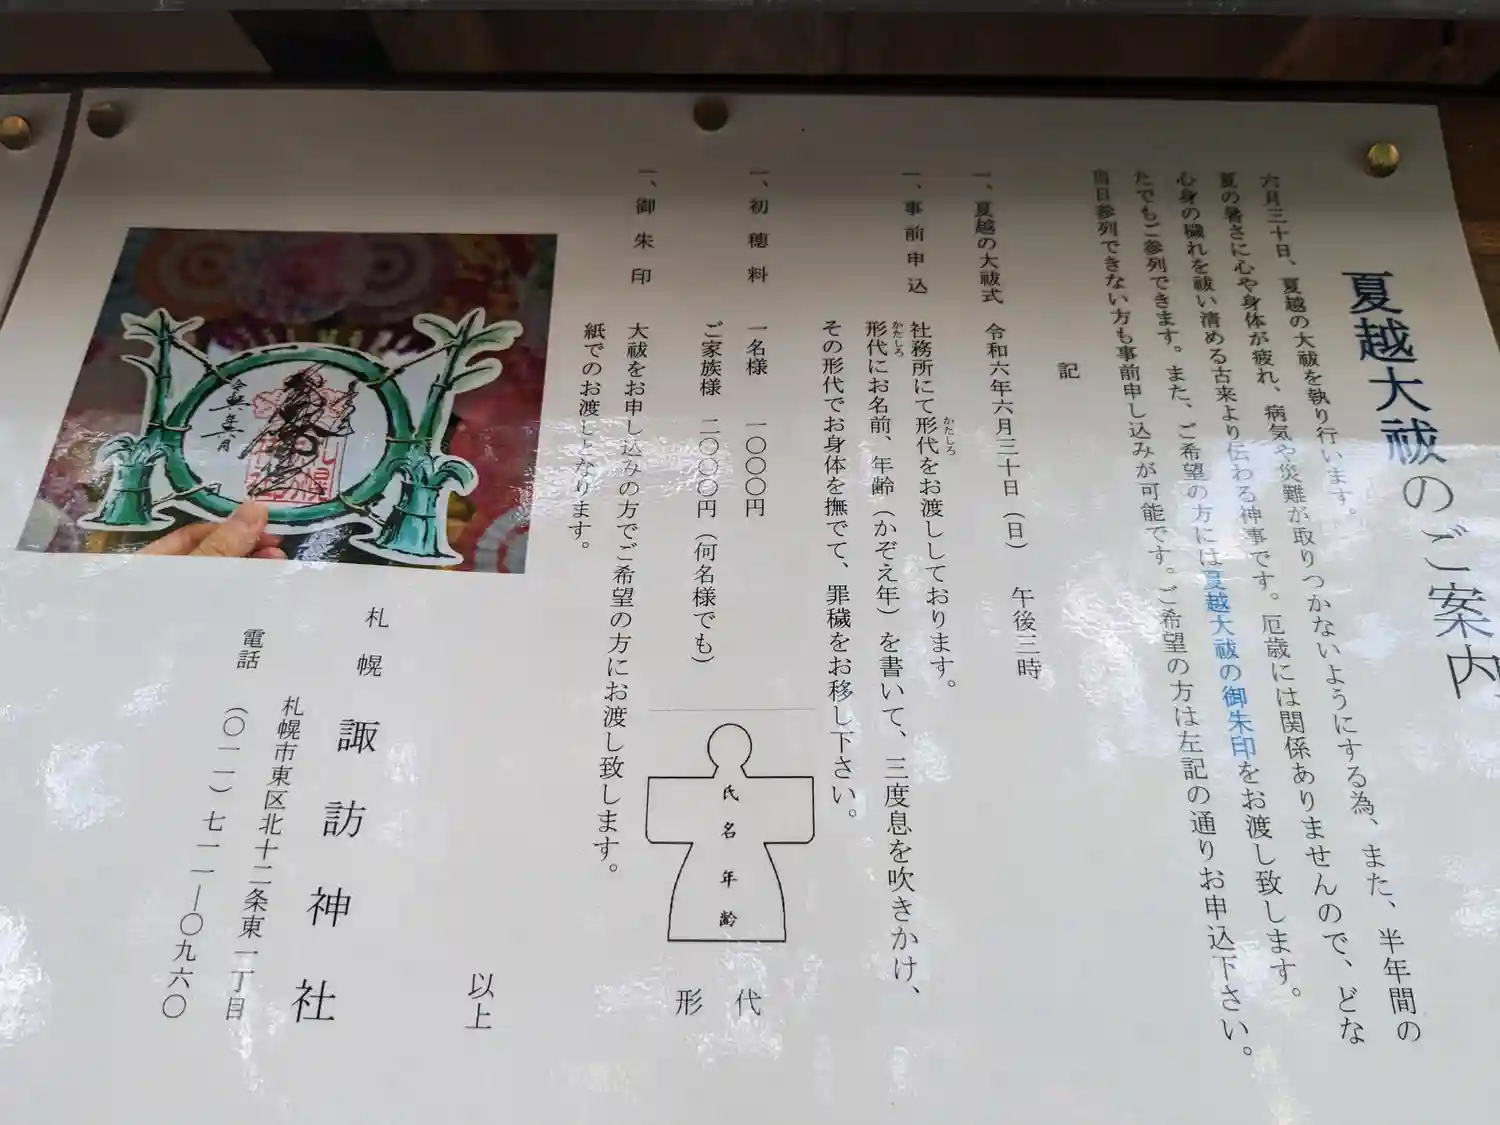 夏越大祓のご案内
六月三十日、夏越の大祓を執り行います。
夏の暑さに心や身体が疲れ、病気や災難が取りつかないようにする為、また、半年間の
心身の穢れを祓い清める古来より伝わる神事です。厄歳には関係ありませんので、どな
たでもご参列できます。また、ご希望の方には夏越大祓の御朱印をお渡し致します。
当日参列できない方も事前申し込みが可能です。ご希望の方は左記の通りお申込下さい。
記
一、夏越の大祓式 令和六年六月三十日（日） 午後三時
一、事前申込 社務所にて形代をお渡ししております。
かたしろ
形代にお名前、年齢（かぞえ年）を書いて、三度息を吹きかけ、
かたしろ
その形代でお身体を撫でて、罪穢をお移し下さい。
一、初穂料 一名様 一〇〇〇円
ご家族様 二〇〇〇円（何名様でも）
一、御朱印 大祓をお申し込みの方でご希望の方にお渡し致します。
紙でのお渡しとなります。
氏名年齢
形代
以上
札幌 諏訪神社
札幌市東区北十二条東一丁目
電話 （〇一一）七一一―〇九六〇